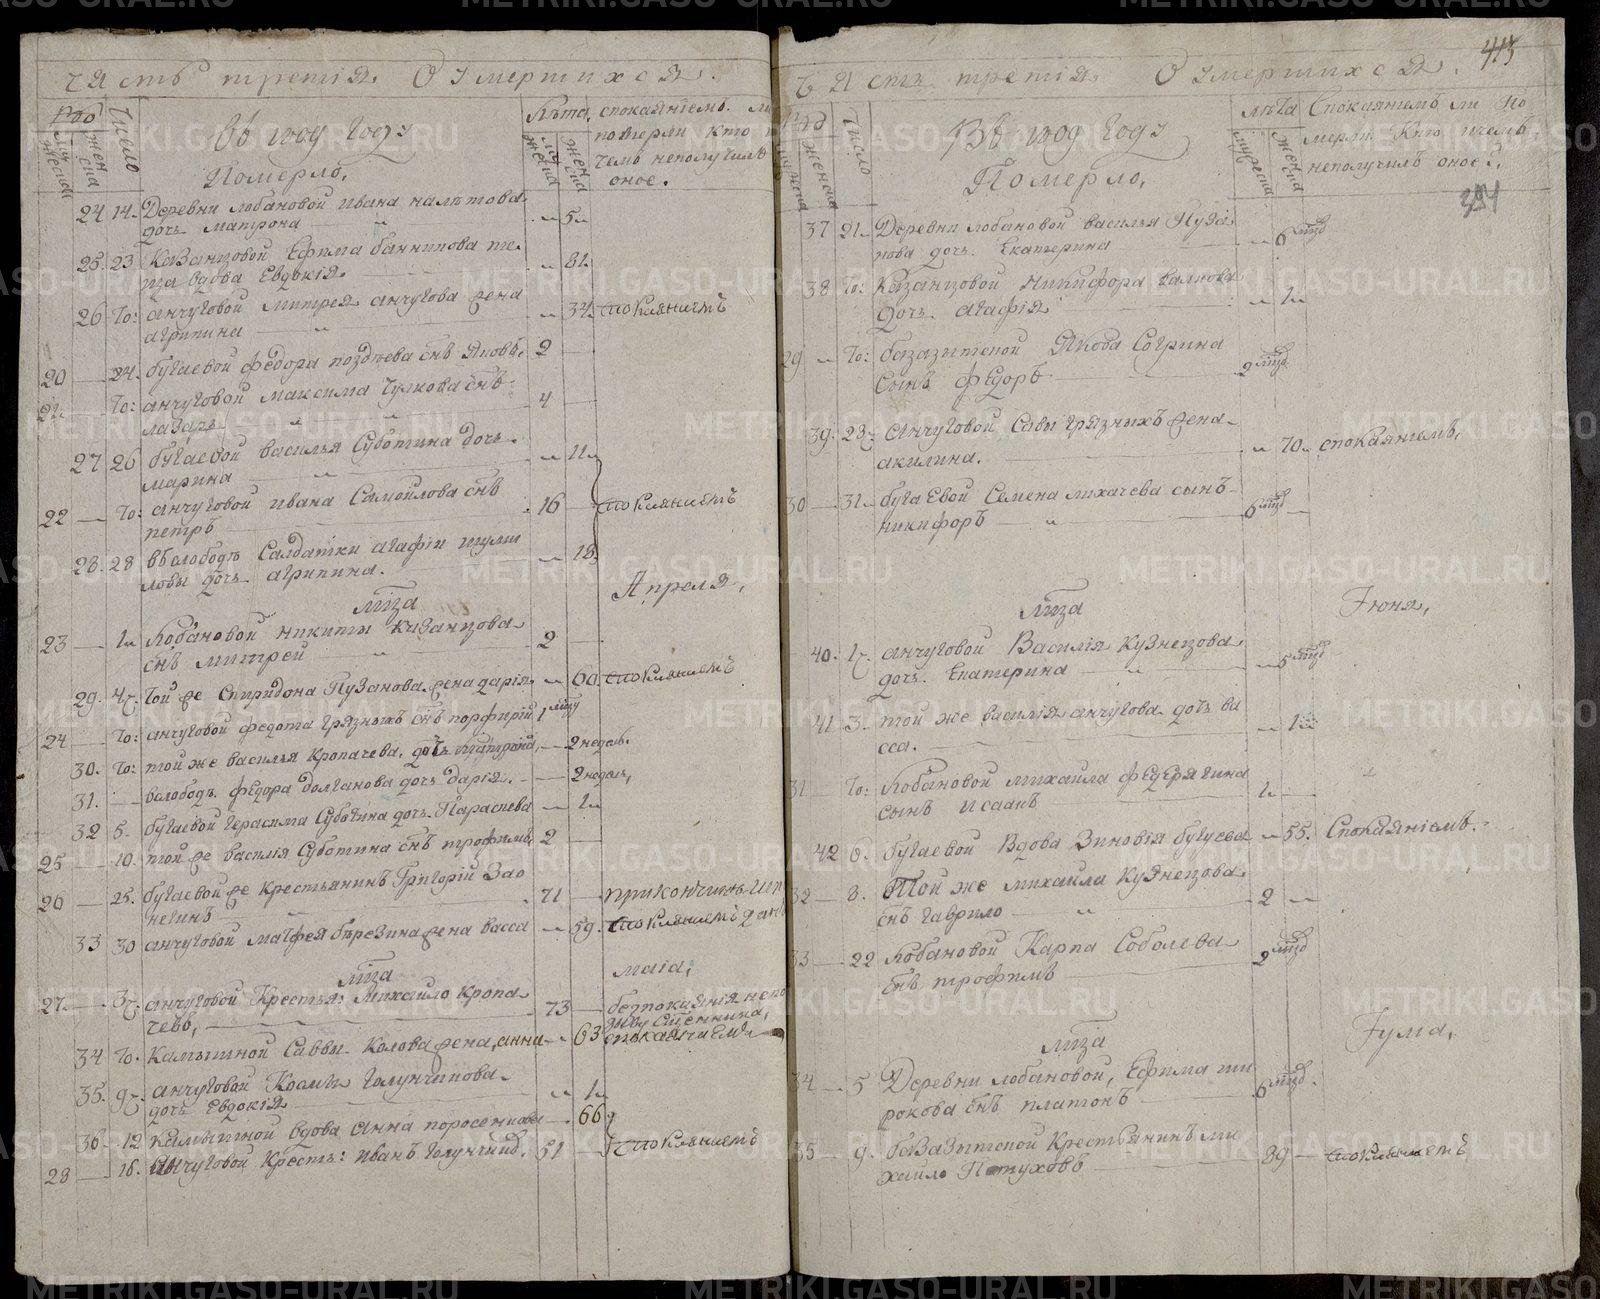 часть третiя О умершихся.
Число
Въ том году
Померло,
лѣта
спокаянiемъ ли
померли кто и
чемъ неполучилъ
оное.
24 14. Деревни лобановой ивана
дочь матрона 5
25. 23 Казанцовой Ефима банникова те
ща вдова Евдокiя 81
26 то: анчуговой митрея анчугова жена
агрипина 34 спокаянiемъ
20 24. бугаевой федора поздѣева снъ яковъ. 2
21 то: анчуговой максима Чулкова снъ
лазарь 4
27 26 бугаевой василья Суботина дочь
марина 11
22 то: анчуговой ивана Самойлова снъ
петръ 16 спокаянiемъ
28. 28 вслободѣ Салдатки агафiи шуми
ловы дочь агрипина. 18
мца Апреля,
23 1 Лобановой никиты Казанцова
снъ митрей 2
29. 4 той же Спиридона Пузанова жена дарiя 60. спокаянiемъ
24 то: анчуговой федота грязныхъ снъ порфирiй 1 мцу
30. то: той же василья Кропачева дочь матрона 2 недель.
31. вслободѣ федора Долганова дочь дарiя. 2 недель,
32 5. бугаевой Герасима Суботина дочь Парасква 1
25 10. той же василiя Суботина снъ трофимъ 2
26 25. бугаевой же Крестьянинъ Григорiй Зао
негинъ 71
33 30 анчуговой матфея бѣрезина жена васса 59. спокаянiемъ
мца маiа,
27. 3 анчуговой Крестья: михайло Кропа
чевъ, 73 безпокаянiя
34 то. Камышной Саввы Колова жена анна 63 спокаянiемъ
35. 9 анчуговой Козмы Голунчикова
дочь Евдокiя 1
36 12 камышной вдова анна поросенкова 66
28 18. анчуговой Кресть: иванъ 51 спокаянiемъ
часть третiя О умершихся.
413
394
Число
Въ том году
Померло,
лѣта
Спокаянiемъ ли по
мерли Кто ичемъ
неполучилъ оное.
37 21. Деревни лобановой василья Пуза
нова дочь Екатерина 6 мцъ
38 то: Казанцовой никифора
дочь агафiя 1
29 то: базазитской Якова Согрина
сынъ федоръ 2 мцъ
39. 28 анчуговой Савы грязныхъ жена
акилина. 70. спокаянiемъ,
30 31 бугаевой Семена лихачева сынъ
никифоръ 6 мцъ
мца Iюня,
40. 1 анчуговой Василiя Кузнецова
дочь Екатерина 5 мцъ
41 3. той же василiя анчугова дочь ва
сса. 1
31 то: Лобановой михаила федерягина
сынъ исаакъ 1
42 6. бугаевой Вдова Зиновiя бугуева 55. Спокаянiемъ.
32 8. Той же михаила Кузнецова
снъ гаврило 2
33 22 Лобановой Карпа Соболева
снъ трофимъ 2 мцъ
мца Iулiа,
34 5 Деревни лобановой, Ефима ши
рокова снъ платонъ 6 мцъ.
35 9. базазытской Крестьянинъ ми
хайло Петуховъ 89 спокаянiемъ